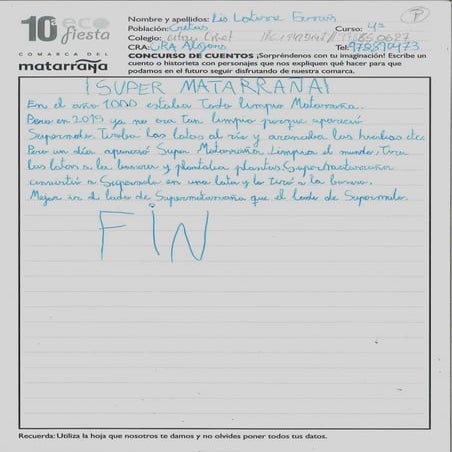 10ª eco
fiesta
COMARCA DEL
matarraña
Nombre y apellidos:
Población: Cretas Curso: 4º
Colegio:
CRA: CRA Algars Tel:
CONCURSO DE CUENTOS ¡Sorpréndenos con tu imaginación! Escribe un
cuento o historieta con personajes que nos expliquen qué hacer para que
podamos en el futuro seguir disfrutando de nuestra comarca.
¡SUPER MATARRAÑA!
En el año 1000 estaba Todo limpio Matarraña.
Pero en 2019 ya no era tan limpio porque apareció
Supermalo. Tiraba las latas al río y arancaba las hierbas etc.
Pero un día apareció Super Matarraña. Limpiaba el mundo. Tira
las latas a la basura y plantaba plantas. Supermatarraña
convirtió a Supermalo en una lata y lo tiró a la basura.
Mejor ir al lado de Supermatarraña que el lado de Supermalo.
FiN
Recuerda: Utiliza la hoja que nosotros te damos y no olvides poner todos tus datos.